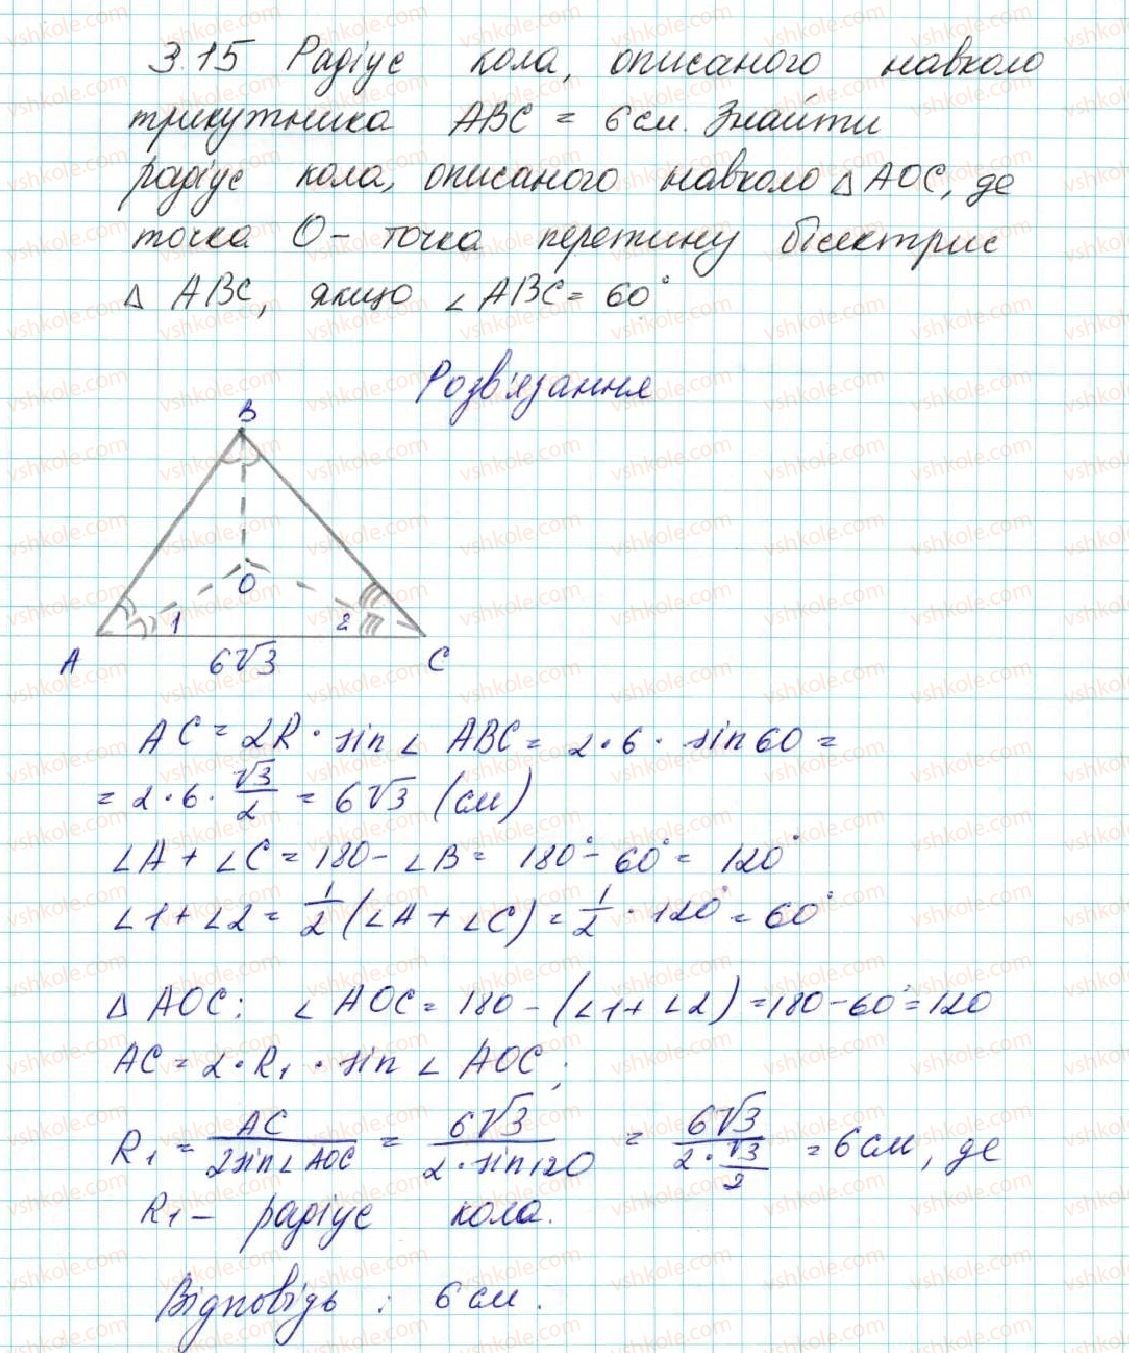 3.15 Радіус кола, описаного навколо
трикутника ABC = 6 см. Знайти
радіус кола, описаного навколо △ AOC, де
точка O – точка перетину бісектрис
△ ABC, якщо ∠ ABC = 60°
Розв'язання
B
O
1 2
A 6√3 C
AC = 2R · sin ∠ ABC = 2 · 6 · sin 60 =
= 2 · 6 · √3/2 = 6√3 (см)
∠A + ∠C = 180 – ∠B = 180° – 60° = 120°
∠1 + ∠2 = 1/2 (∠A + ∠C) = 1/2 · 120° = 60°
△ AOC: ∠ AOC = 180 – (∠1 + ∠2) = 180 – 60° = 120
AC = 2 · R₁ · sin ∠ AOC;
R₁ = AC / 2 sin ∠ AOC = 6√3 / 2 · sin 120 = 6√3 / 2 · √3/2 = 6 см, де
R₁ – радіус кола.
Відповідь: 6 см.
vshkole.com